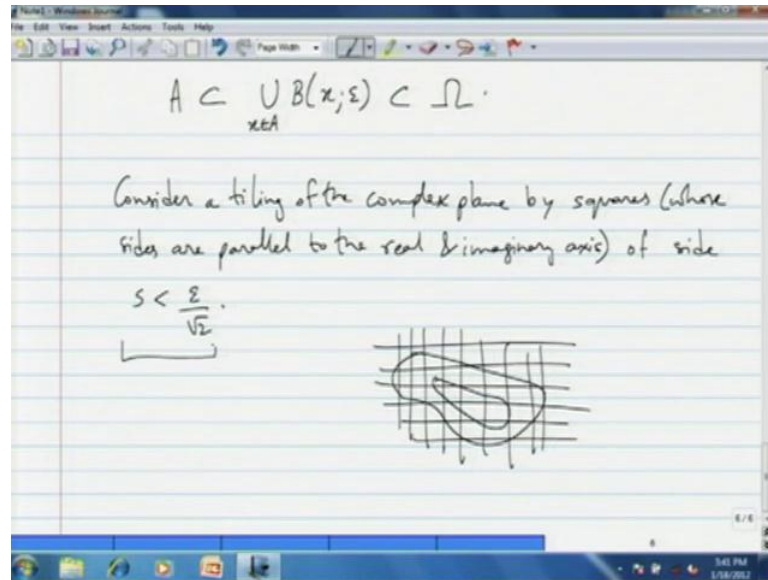 Note1 - Windows Journal
File Edit View Insert Actions Tools Help
Page Width
A ⊂ ∪ B(x;ε) ⊂ Ω.
x∈A
Consider a tiling of the complex plane by squares (whose
sides are parallel to the real & imaginary axis) of side
s < ε/√2.
6/6
6
5:41 PM
1/18/2012